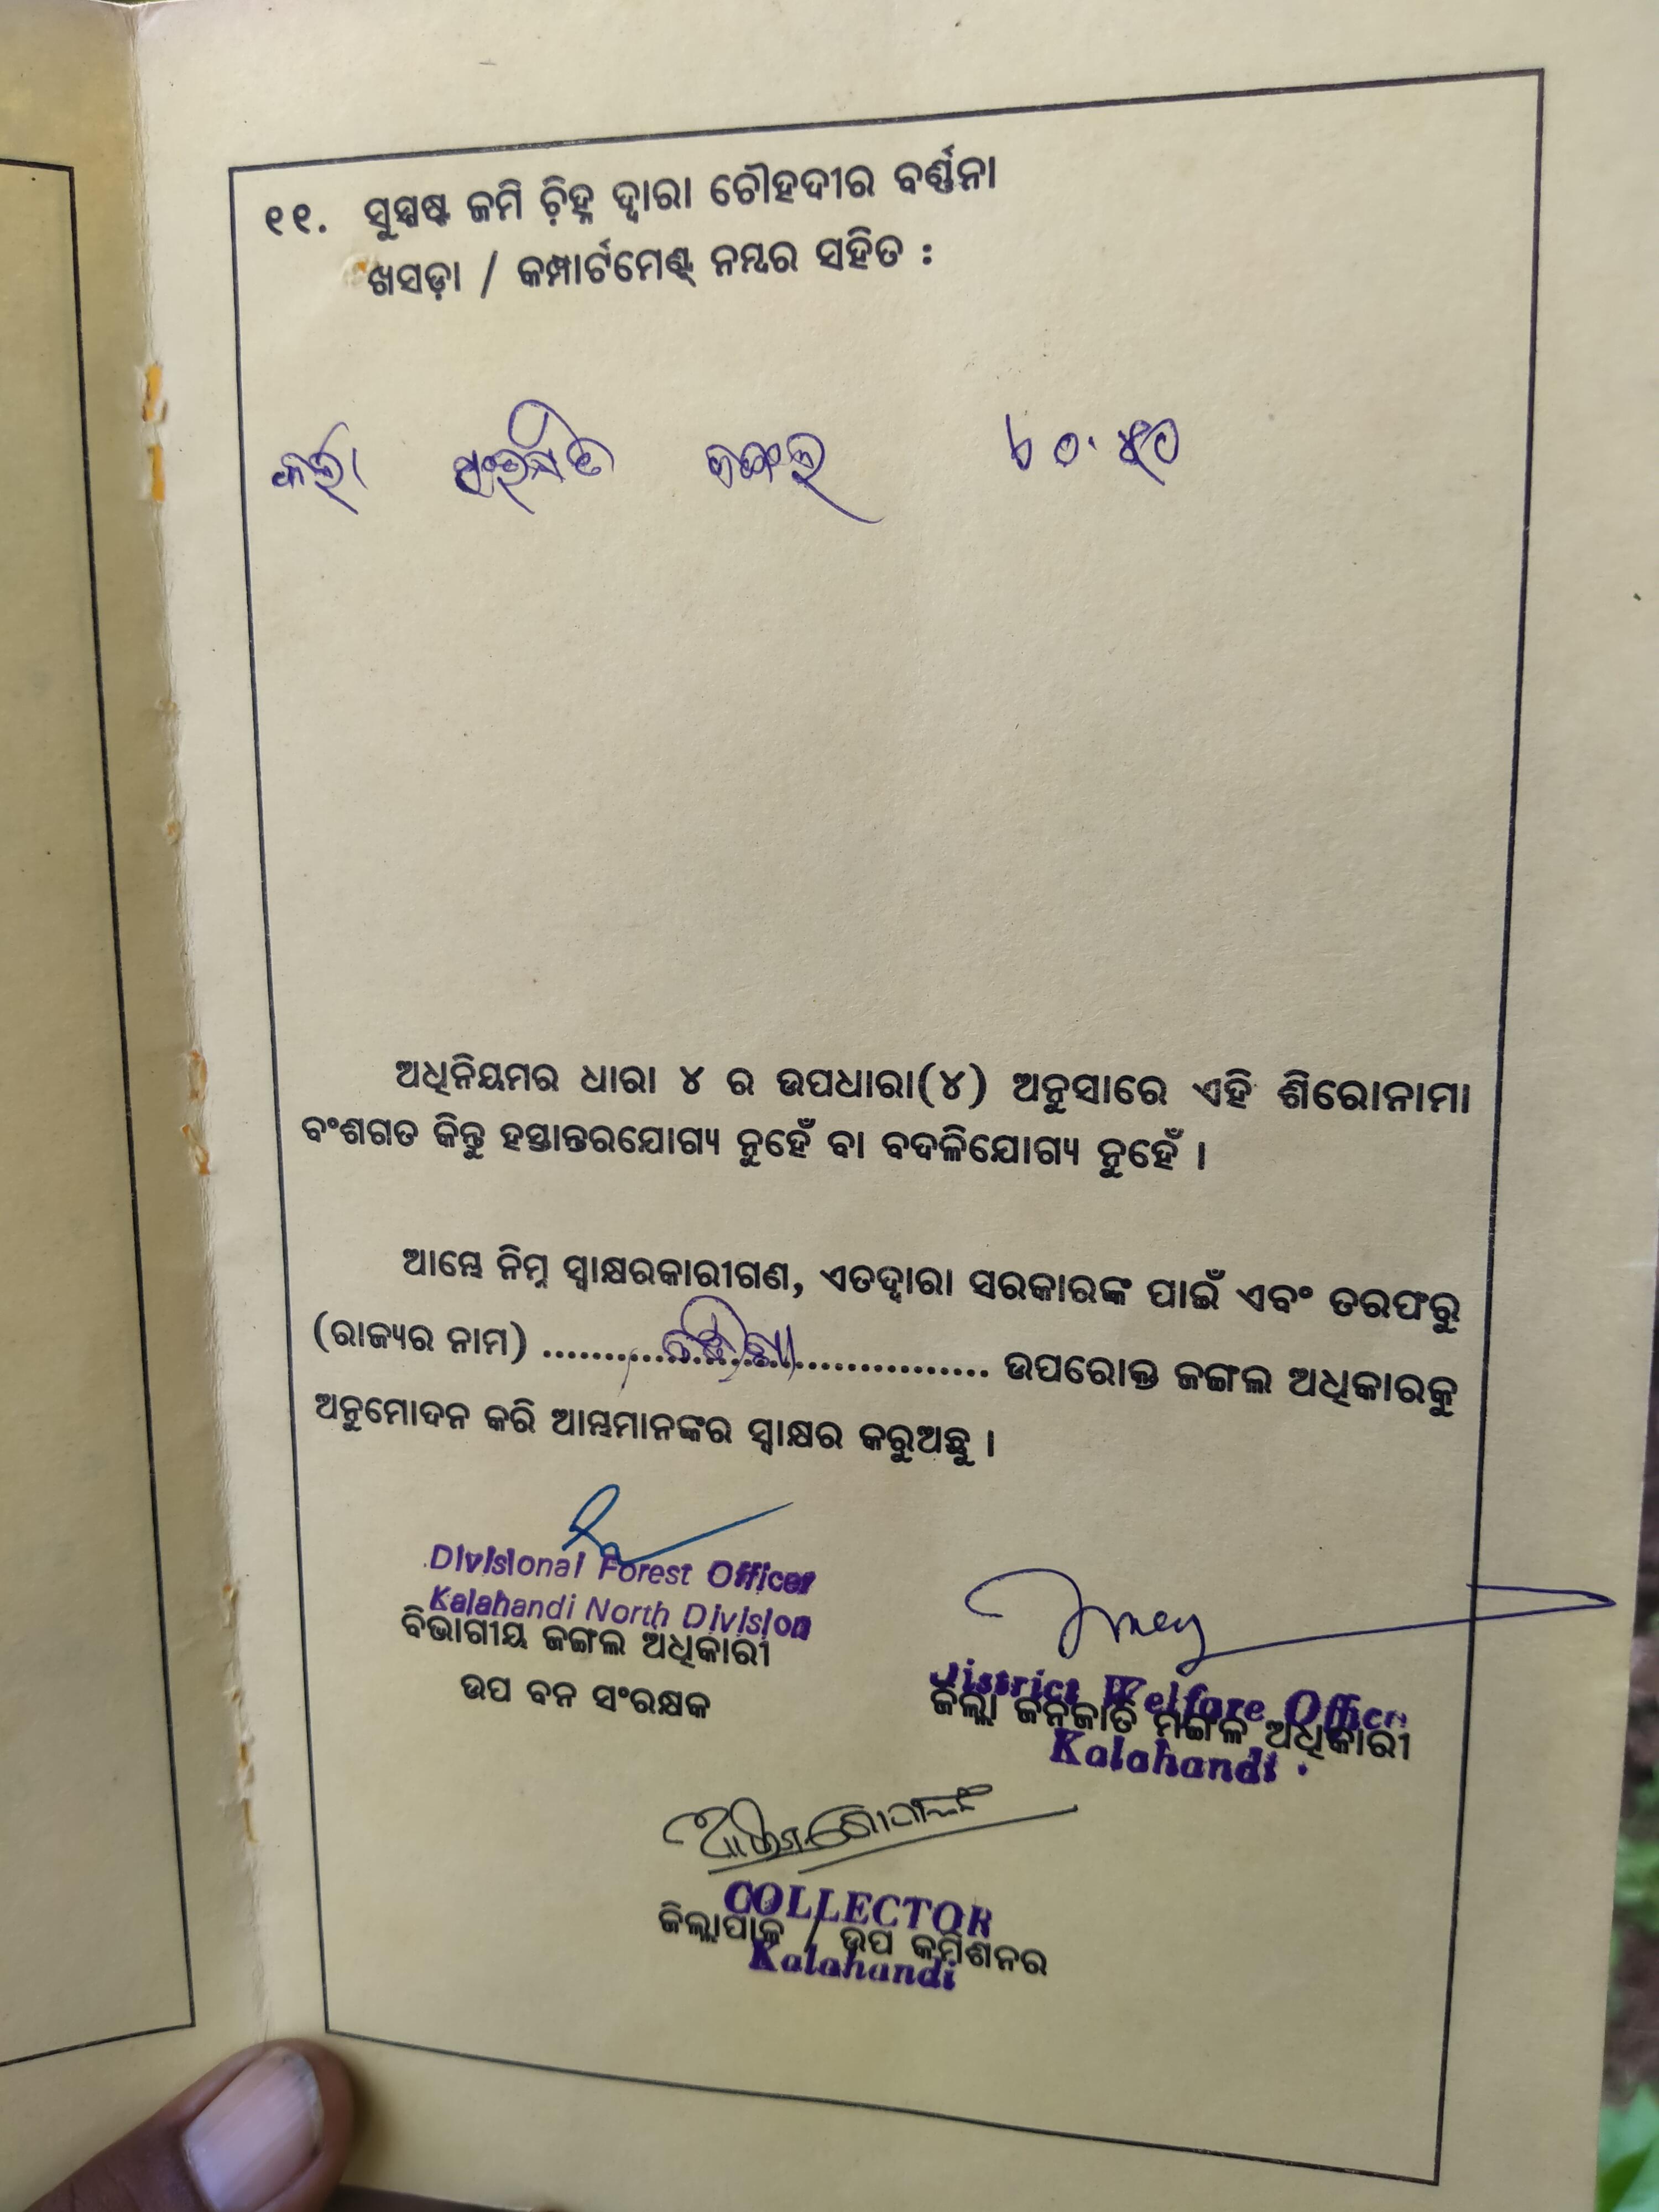 ୧୧. ସୁସ୍ପଷ୍ଟ ଜମି ଚ଼ିହ୍ନ ଦ୍ୱାରା ଚୌହଦୀର ବର୍ଣ୍ଣନା
ଖସଡ଼ା / କମ୍ପାର୍ଟମେଣ୍ଟ୍ ନମ୍ବର ସହିତ :
ଜଙ୍ଗଲ ୪୦.୫୦
ଅଧିନିୟମର ଧାରା ୪ ର ଉପଧାରା(୪) ଅନୁସାରେ ଏହି ଶିରୋନାମା
ବଂଶଗତ କିନ୍ତୁ ହସ୍ତାନ୍ତରଯୋଗ୍ୟ ନୁହେଁ ବା ବଦଳିଯୋଗ୍ୟ ନୁହେଁ ।
ଆମ୍ଭେ ନିମ୍ନ ସ୍ୱାକ୍ଷରକାରୀଗଣ, ଏତଦ୍ୱାରା ସରକାରଙ୍କ ପାଇଁ ଏବଂ ତରଫରୁ
(ରାଜ୍ୟର ନାମ) ........ଓଡ଼ିଶା........ ଉପରୋକ୍ତ ଜଙ୍ଗଲ ଅଧିକାରକୁ
ଅନୁମୋଦନ କରି ଆମ୍ଭମାନଙ୍କର ସ୍ୱାକ୍ଷର କରୁଅଛୁ ।
Divisional Forest Officer
Kalahandi North Division
ବିଭାଗୀୟ ଜଙ୍ଗଲ ଅଧିକାରୀ
ଉପ ବନ ସଂରକ୍ଷକ
District Welfare Officer
ଜିଲ୍ଲା ଜନଜାତି ମଙ୍ଗଳ ଅଧିକାରୀ
Kalahandi.
COLLECTOR
ଜିଲ୍ଲାପାଳ / ଉପ କମିଶନର
Kalahandi